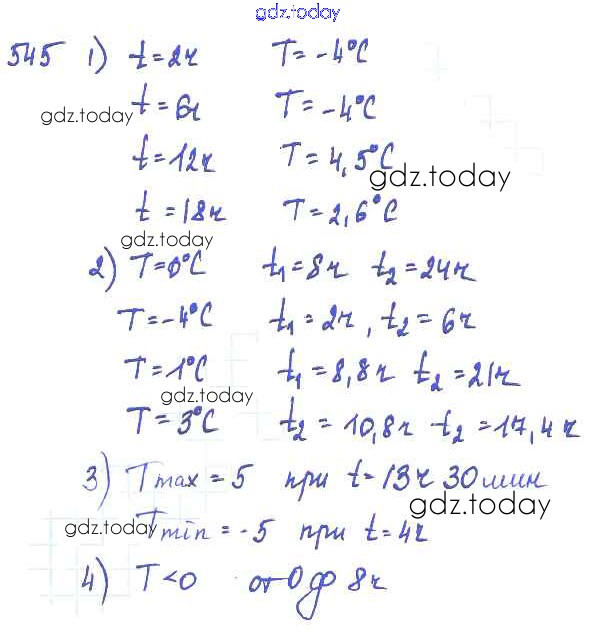 gdz.today
545 1) t=2ч T=-4°C
t=6ч T=-4°C
gdz.today
t=12ч T=4,5°C
gdz.today
t=18ч T=2,6°C
gdz.today
2) T=0°C t₁=8ч t₂=24ч
T=-4°C t₁=2ч, t₂=6ч
T=1°C t₁=8,8ч t₂=21ч
gdz.today
T=3°C t₂=10,8ч t₂=17,4ч
3) Tmax=5 при t=13ч 30мин
gdz.today
gdz.today
Tmin=-5 при t=4ч
4) T<0 от 0 до 8ч